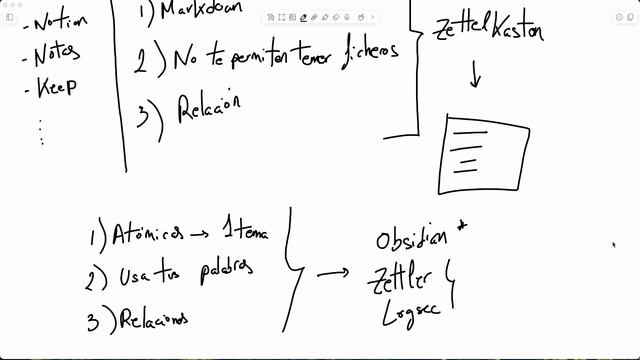 - Notion
- Notas
- Keep
1) Markdoan
2) No te permiten tener ficheros
3) Relación
Zettelkaston
1) Atómicos → 1 tema
2) Usa tus palabras
3) Relaciones
Obsidian *
Zettler
Logsec